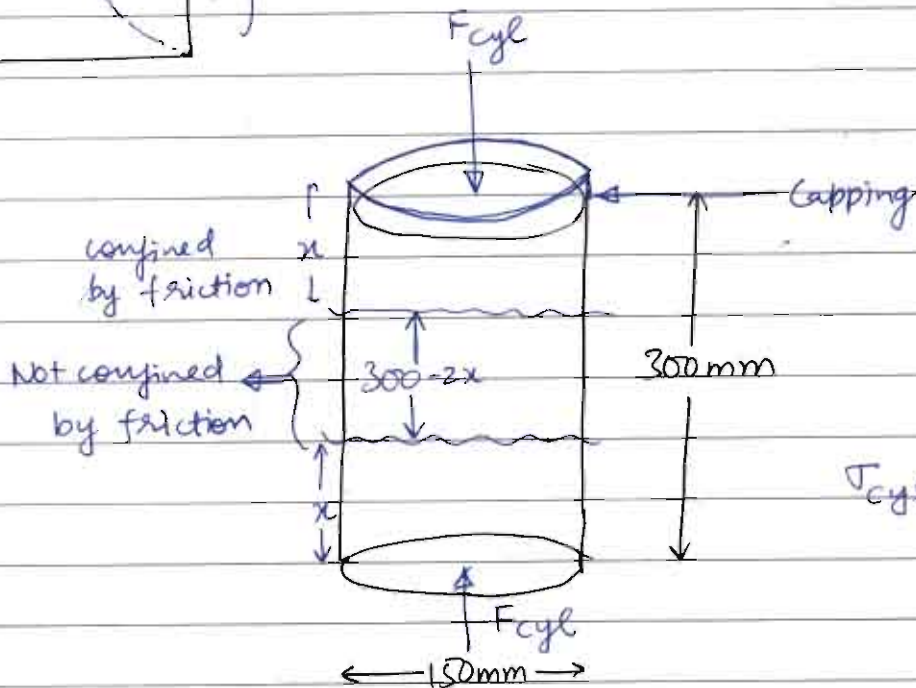 Fcyl
Capping
x
confined
by friction
Not confined
by friction
300-2x
300mm
x
σcyl
Fcyl
150mm